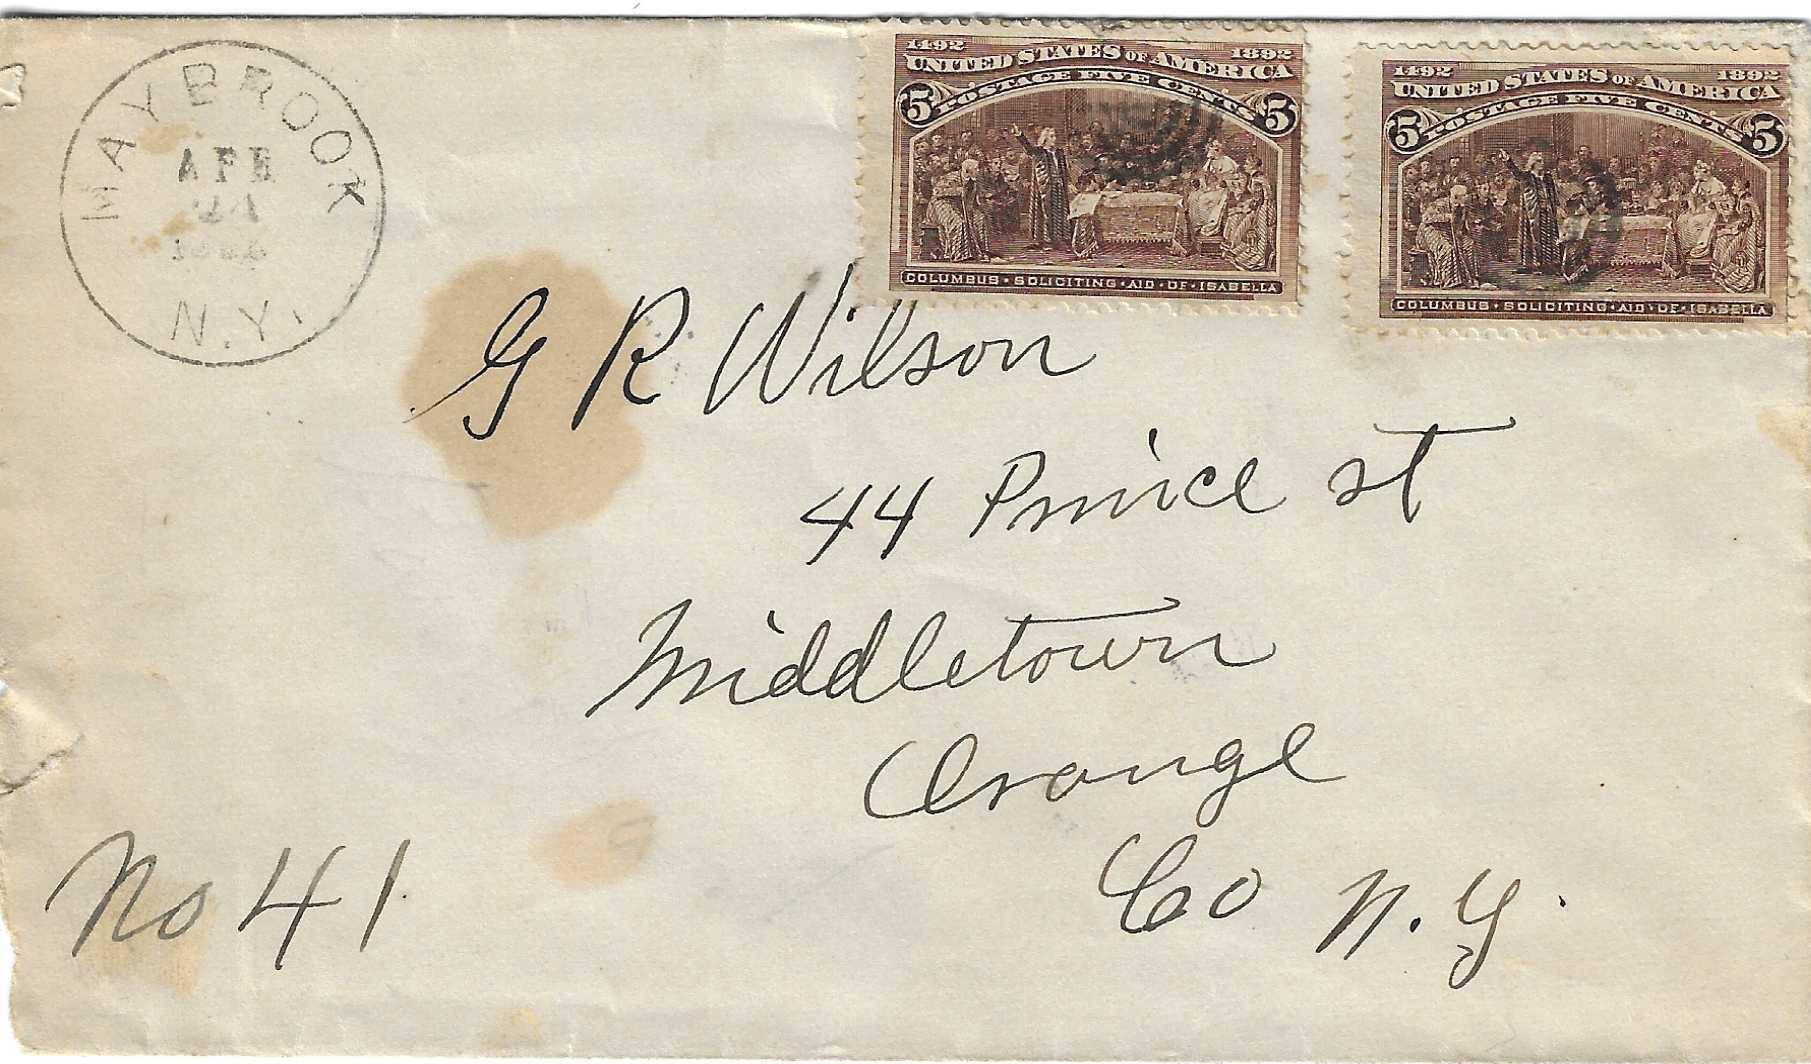 MAYBROOK
APR
24
N.Y.
1492 1892
UNITED STATES OF AMERICA
POSTAGE FIVE CENTS
5 5
COLUMBUS · SOLICITING · AID · OF · ISABELLA
1492 1892
UNITED STATES OF AMERICA
POSTAGE FIVE CENTS
5 5
COLUMBUS · SOLICITING · AID · OF · ISABELLA
G R Wilson
44 Prince st
Middletown
Orange
Co N.Y.
No 41